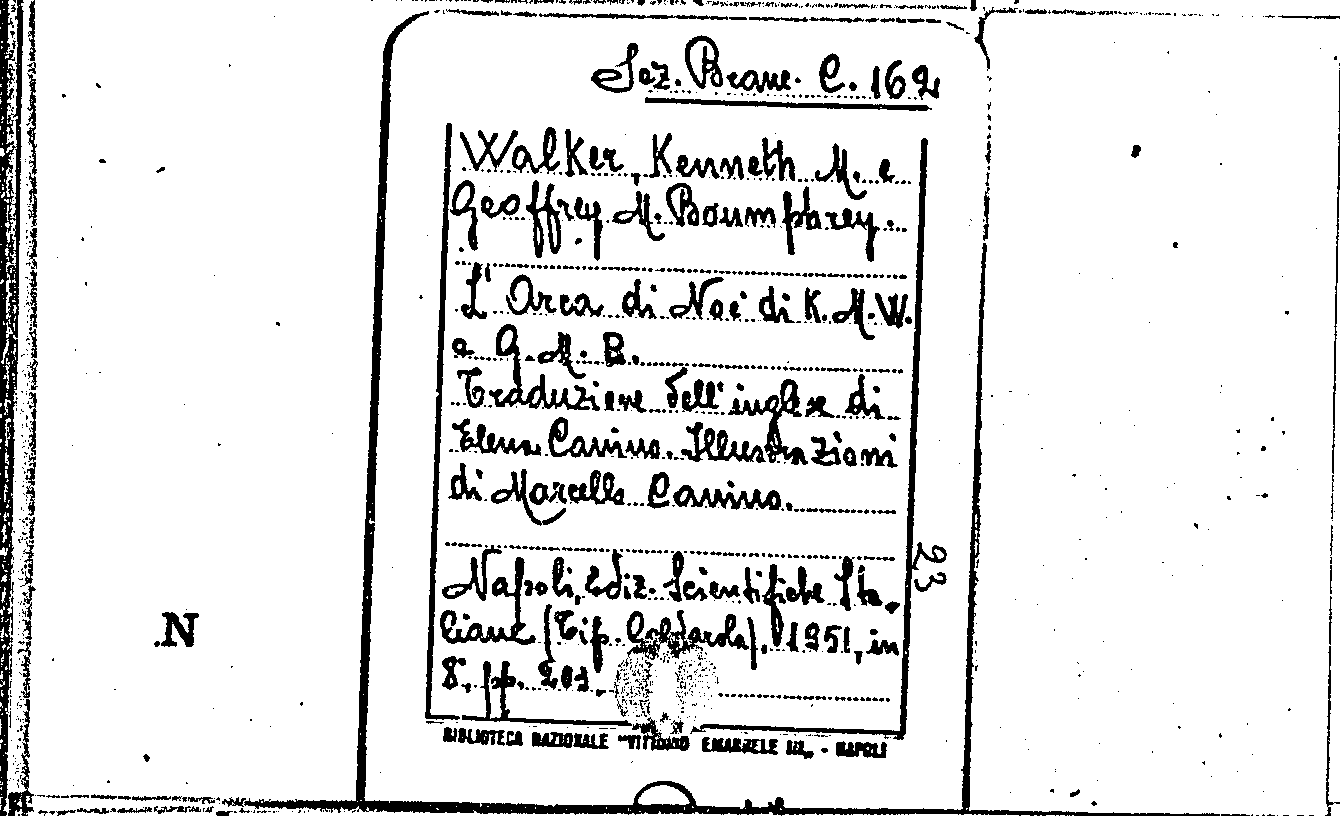 Sez. Branc. C. 162
Walker, Kenneth M. e
Geoffrey M. Boumphrey.
L'Arca di Noè di K. M. W.
e G. M. B.
Traduzione dell'inglese di
Elena Canino. Illustrazioni
di Marcello Canino.
23
Napoli, Ediz. Scientifiche Ita-
liane (Tip. Coldarola), 1951, in
8°, pp. 203.
BIBLIOTECA NAZIONALE "VITTORIO EMANUELE III„ - NAPOLI
.N